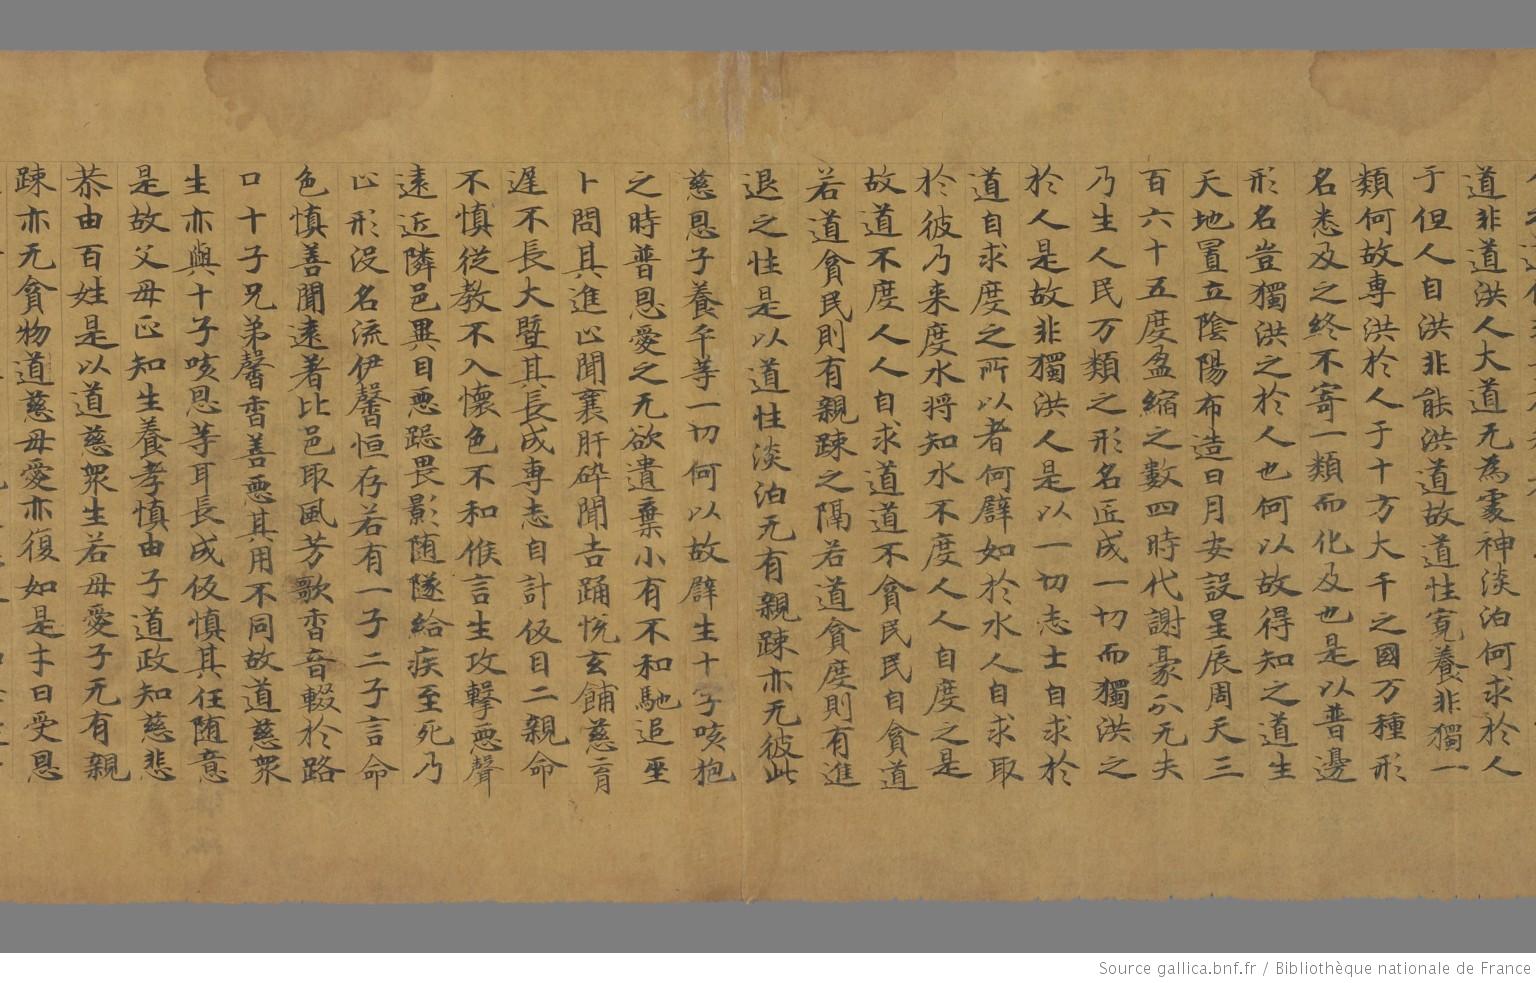 道非道洪人大道无為虛神淡泊何求於人
于但人自洪非能洪道故道性寬養非獨一
類何故専洪於人于十方大千之國万種形
名悉及之終不寄一類而化及也是以普邊
形名豈獨洪之於人也何以故得知之道生
天地置立陰陽布造日月安設星辰周天三
百六十五度盈縮之數四時代謝豪尒无夫
乃生人民万類之形名匠成一切而獨洪之
於人是故非獨洪人是以一切志士自求於
道自求度之所以者何譬如於水人自求取
於彼乃来度水将知水不度人人自度之是
故道不度人人自求道道不貪民民自貪道
若道貪民則有親踈之隔若道貪度則有進
退之性是以道性淡泊无有親踈亦无彼此
慈恩子養千等一切何以故譬生十子咳抱
之時普恩愛之无欲遺棄小有不和馳追巫
卜問其進止聞襄肝碎聞吉踊恱玄餔慈育
遲不長大曁其長成専志自計伭目二親命
不慎従教不入懷色不和候言生攻擊惡聲
遠近隣邑異目惡跽畏影随隧給疾至死乃
止形没名流伊馨恒存若有一子二子言命
色慎善聞遠著比邑取風芳歌香音輟於路
口十子兄弟馨香善惡其用不同故道慈衆
生亦與十子咳恩等耳長成伭慎其任随意
是故父母正知生養孝慎由子道政知慈悲
恭由百姓是以道慈衆生若母愛子无有親
踈亦无貪物道慈母愛亦復如是于曰受恩